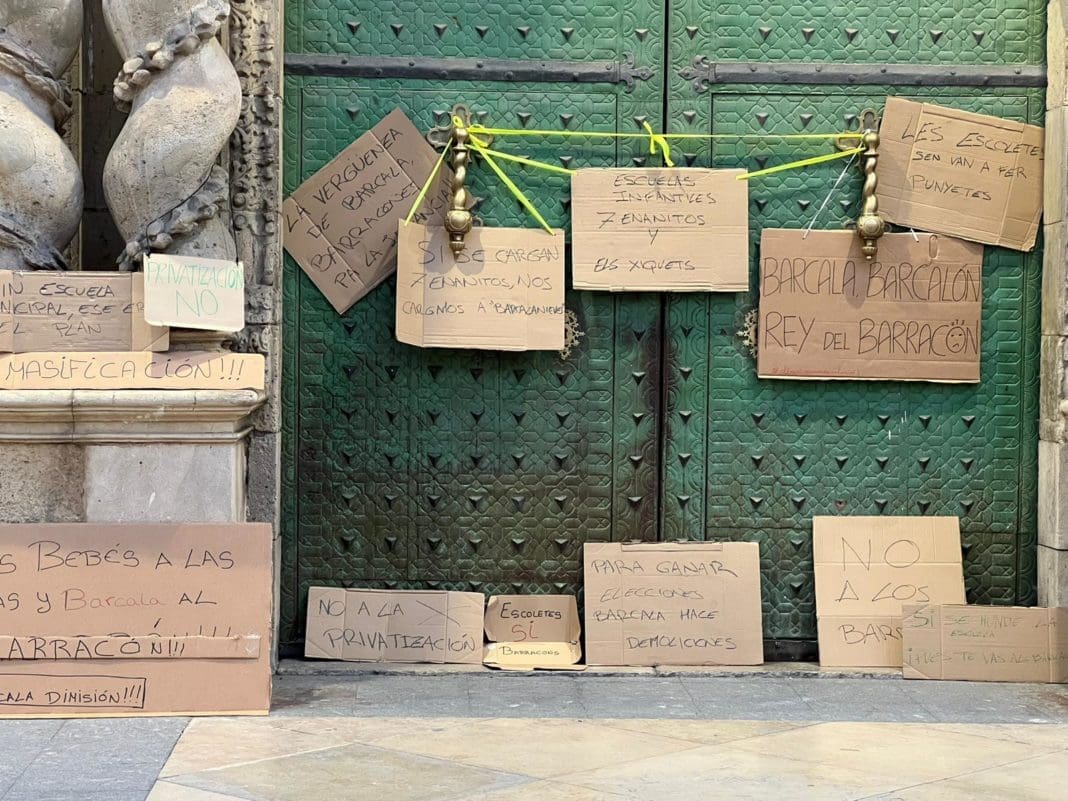 LA VERGÜENZA
DE BARCALA,
BARRACONES
PA LA
SI SE CARGAN
7ENANITOS, NOS
CARGMOS A
ESCUELAS
INFANTILES
7 ENANITOS
Y
ELS XIQUETS
LES ESCOLETES
SEN VAN A FER
PUNYETES
BARCALA, BARCALÓN
REY DEL BARRACÓN
PRIVATIZACIÓN
NO
IN ESCUELA
NICIPAL, ESE ER
EL PLAN
MASIFICACIÓN!!!
S BEBÉS A LAS
AS Y Barcala AL
ARRACÓN!!!
CALA DIMISIÓN!!!
NO A LA
PRIVATIZACIÓN
ESCOLETES
SÍ
BARRACONS
PARA GANAR
ELECCIONES
BARCALA HACE
DEMOLICIONES
NO
A LOS
BARR
SI SE HUNDE LA
ESCOLETA
TE VAS AL